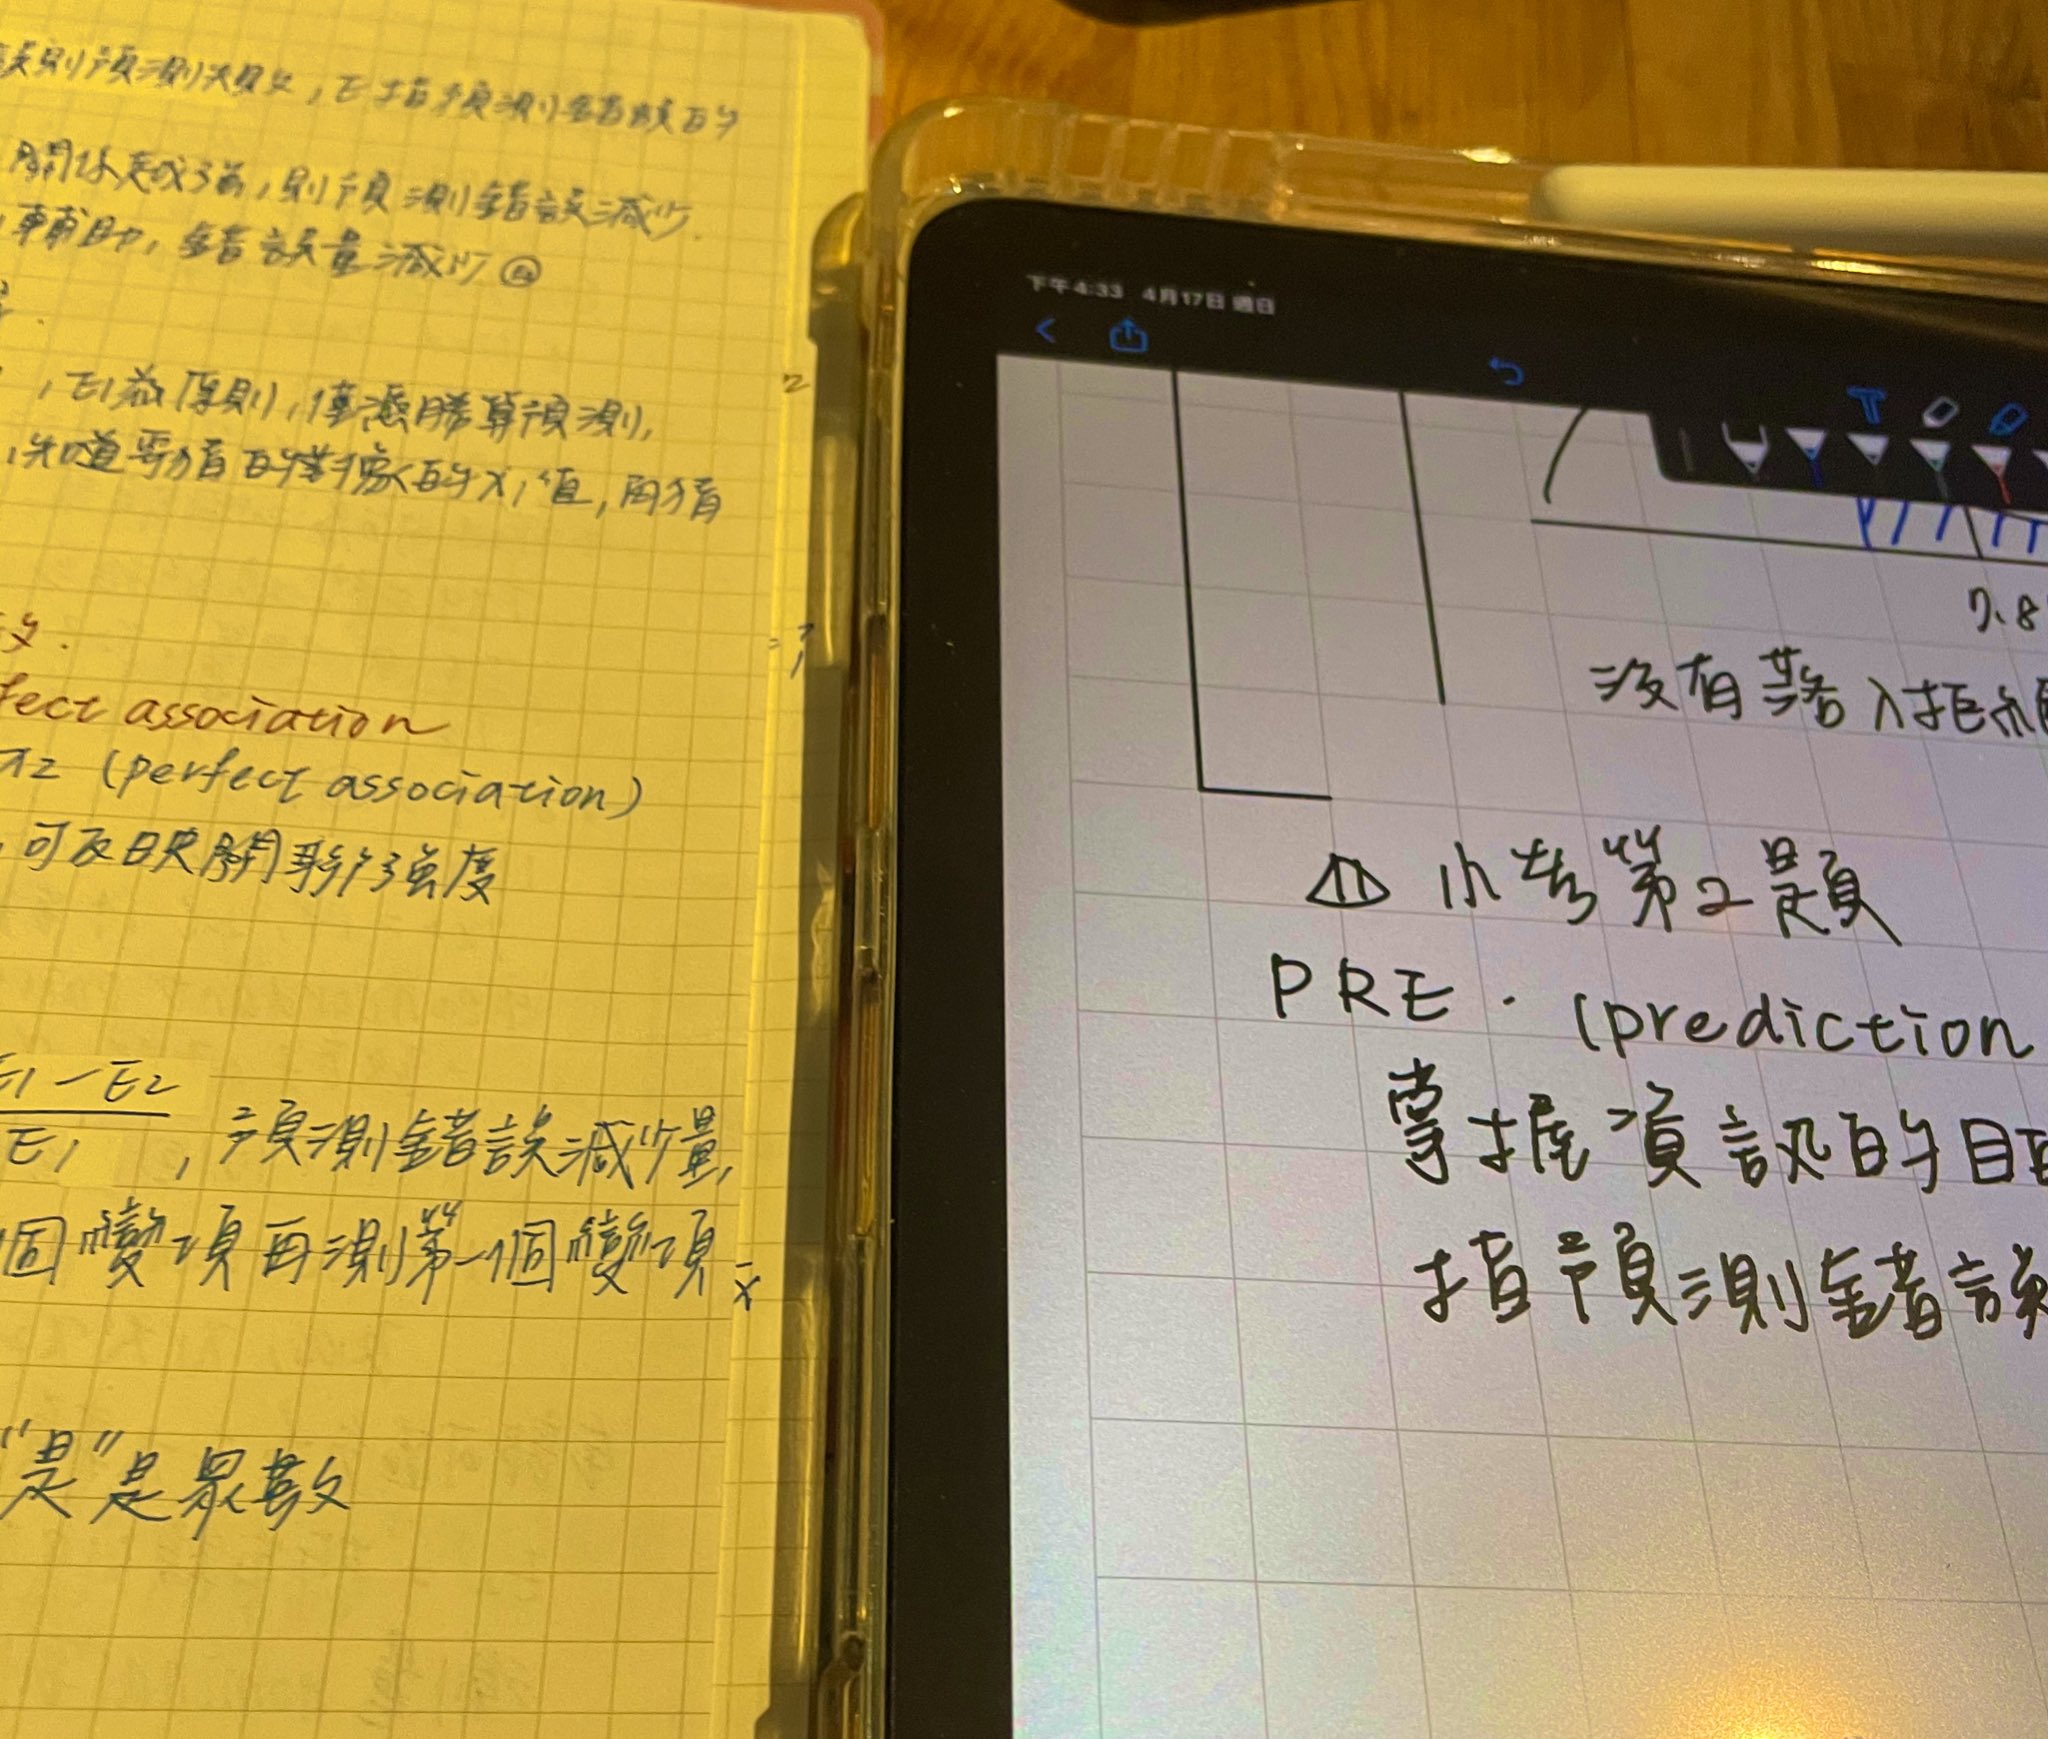 誤則預測失敗, E指預測錯誤的
關係越強,則預測錯誤減少.
輔助,錯誤量減少
,E1為原則,僅憑勝算預測,
,知道要猜的對象的X1值,再猜
fect association
π2 (perfect association)
,可反映關聯強度
E1-E2
E1
,預測錯誤減少量,
個變項再測第一個變項
"是"是眾數
下午4:33 4月17日 週日
7.8
沒有落入拒絕
小考第2題
PRE. (prediction
掌握資訊的目
指預測錯誤